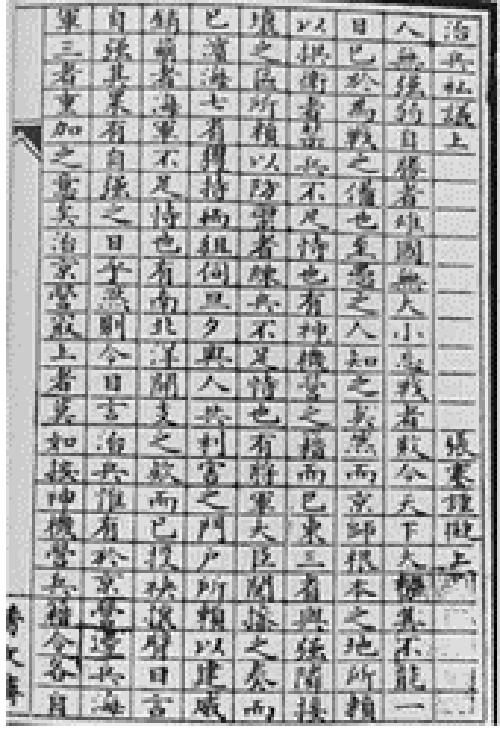 治兵私議上 張謇謹擬上
人無強弱自張者雄國無大小忘戰者敗今天下大勢其不能一
日已於為戰之備也至愚之人知之矣然而京師根本之地所賴
以拱衛者禁兵不足恃也有神機營之籍而已東三省與強隣接
壤之區所賴以防禦者練兵不足恃也有將軍大臣閱操之奏而
已濱海七省伺旦夕與人共利害之門戶所賴以建威
銷萌者海軍不足恃也有南北洋開支之款而已投袂臂日言
自強其果有自強之日乎然則今日言治兵惟有於京營邊兵海
軍三者重加之意矣治京營最上者莫如按神機營兵籍令各自